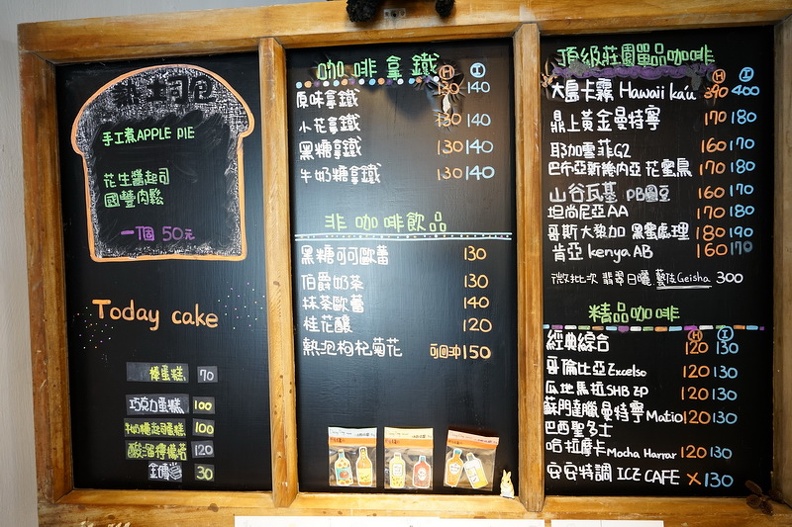 熱土司包
手工煮APPLE PIE
花生醬起司
國豐肉鬆
一個 50元
Today cake
棒蛋糕 70
巧克力蛋糕 100
牛奶糖起司蛋糕 100
120
30
咖啡拿鐵 H I
原味拿鐵 130 140
小花拿鐵 130 140
黑糖拿鐵 130 140
牛奶糖拿鐵 130 140
非咖啡飲品
黑糖可可歐蕾 130
伯爵奶茶 130
抹茶歐蕾 140
桂花釀 120
熱泡枸杞菊花 可回沖 150
頂級莊園單品咖啡 H I
大島卡霧 Hawaii ka'u 390 400
鼎上黃金曼特寧 170 180
耶加雪菲G2 160 170
巴布亞新幾內亞 花蜜鳥 170 180
山谷瓦基 PB圓豆 160 170
坦尚尼亞AA 170 180
哥斯大黎加 黑蜜處理 180 190
肯亞 kenya AB 160 170
微批次 翡翠日曬 藝伎Geisha 300
精品咖啡 H I
經典綜合 120 130
哥倫比亞 Excelso 120 130
瓜地馬拉 SHB ZP 120 130
蘇門達臘曼特寧 Matio 120 130
巴西聖多士
哈拉摩卡 Mocha Harrar 120 130
安安特調 ICE CAFE X 130